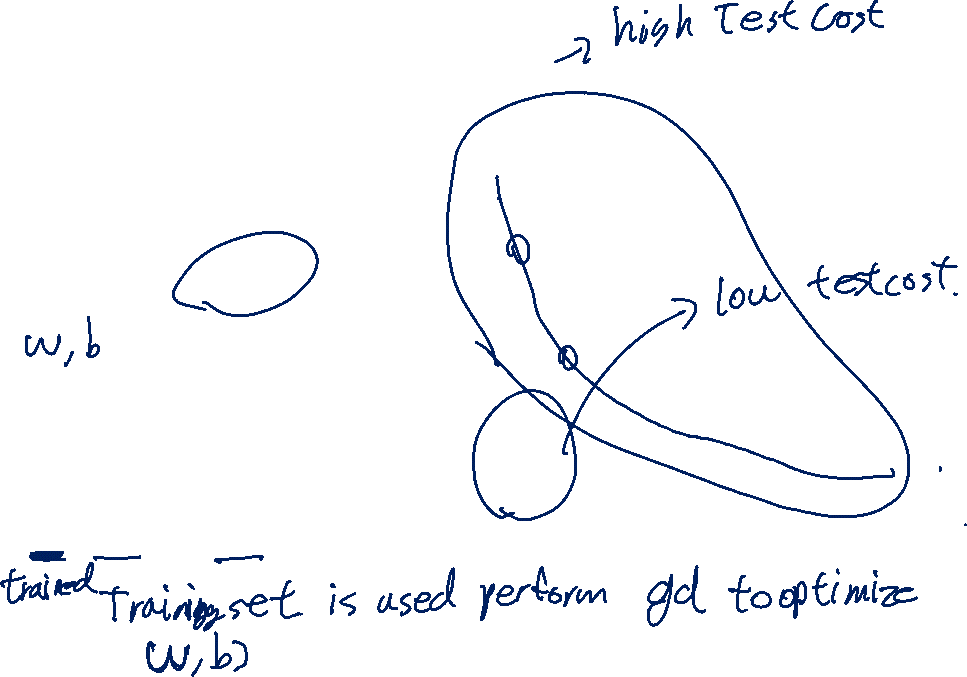 high Test Cost
low testcost.
w, b
trained Training set is used perform gd to optimize
w, b)